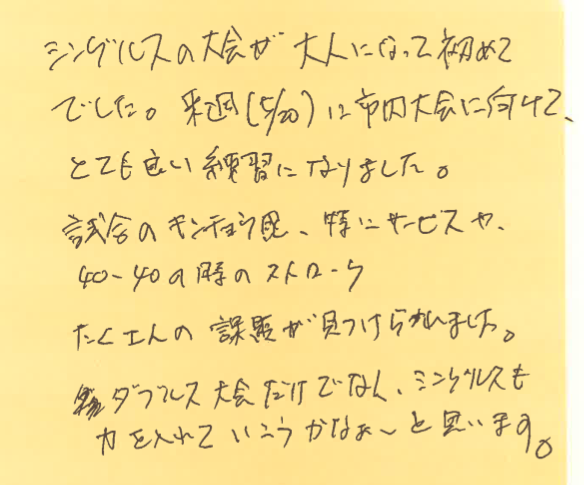 シングルスの大会が大人になって初めて
でした。来週(5/20)に市内大会に向けて、
とても良い練習になりました。
試合のキンチョウ感、特にサービスや、
40-40の時のストローク
たくさんの課題が見つけられました。
ダブルス大会だけでなく、シングルスも
力を入れていこうかなぁ〜と思います。